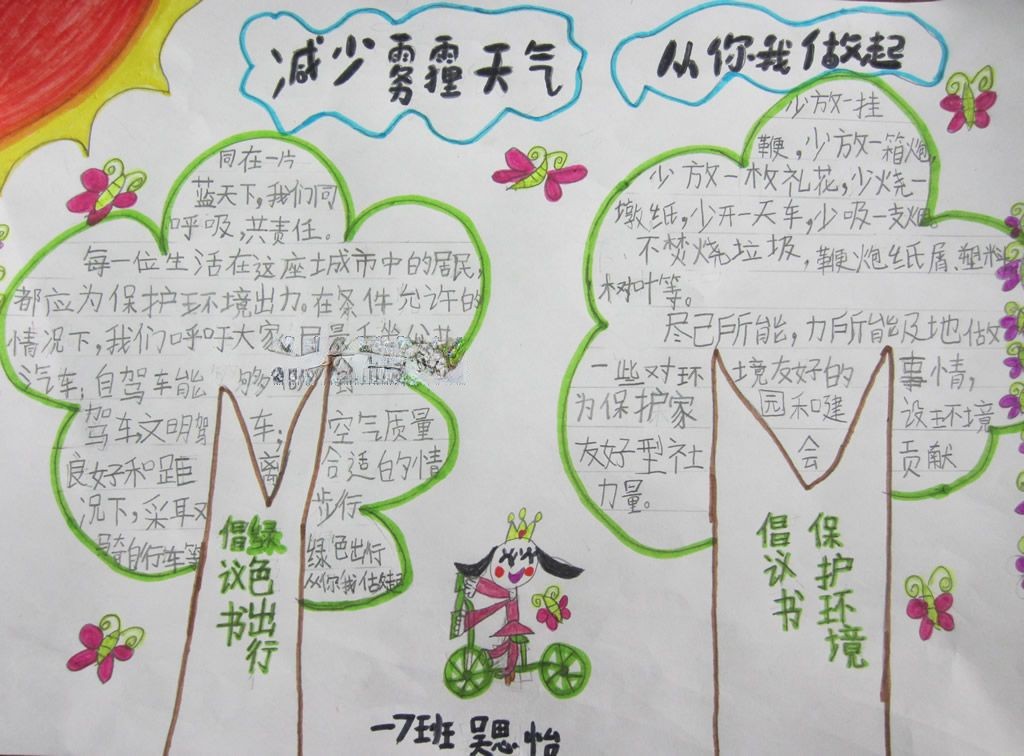 减少雾霾天气
从你我做起
同在一片
蓝天下,我们同
呼吸,共责任。
每一位生活在这座城市中的居民,
都应为保护环境出力。在条件允许的
情况下,我们呼吁大家
汽车;自驾车能够
驾车,文明驾车;空气质量
良好和距离合适的情
况下,采取步行
骑自行车等绿色出行
从你我做起
绿色出行
倡议书
少放一挂
鞭,少放一箱炮,
少放一枚礼花,少烧一
墩纸,少开一天车,少吸一支烟。
不焚烧垃圾,鞭炮纸屑、塑料
树叶等。
尽己所能,力所能及地做
一些对环境友好的事情,
为保护家园和建设环境
友好型社会贡献
力量。
保护环境
倡议书
一7班 吴思怡